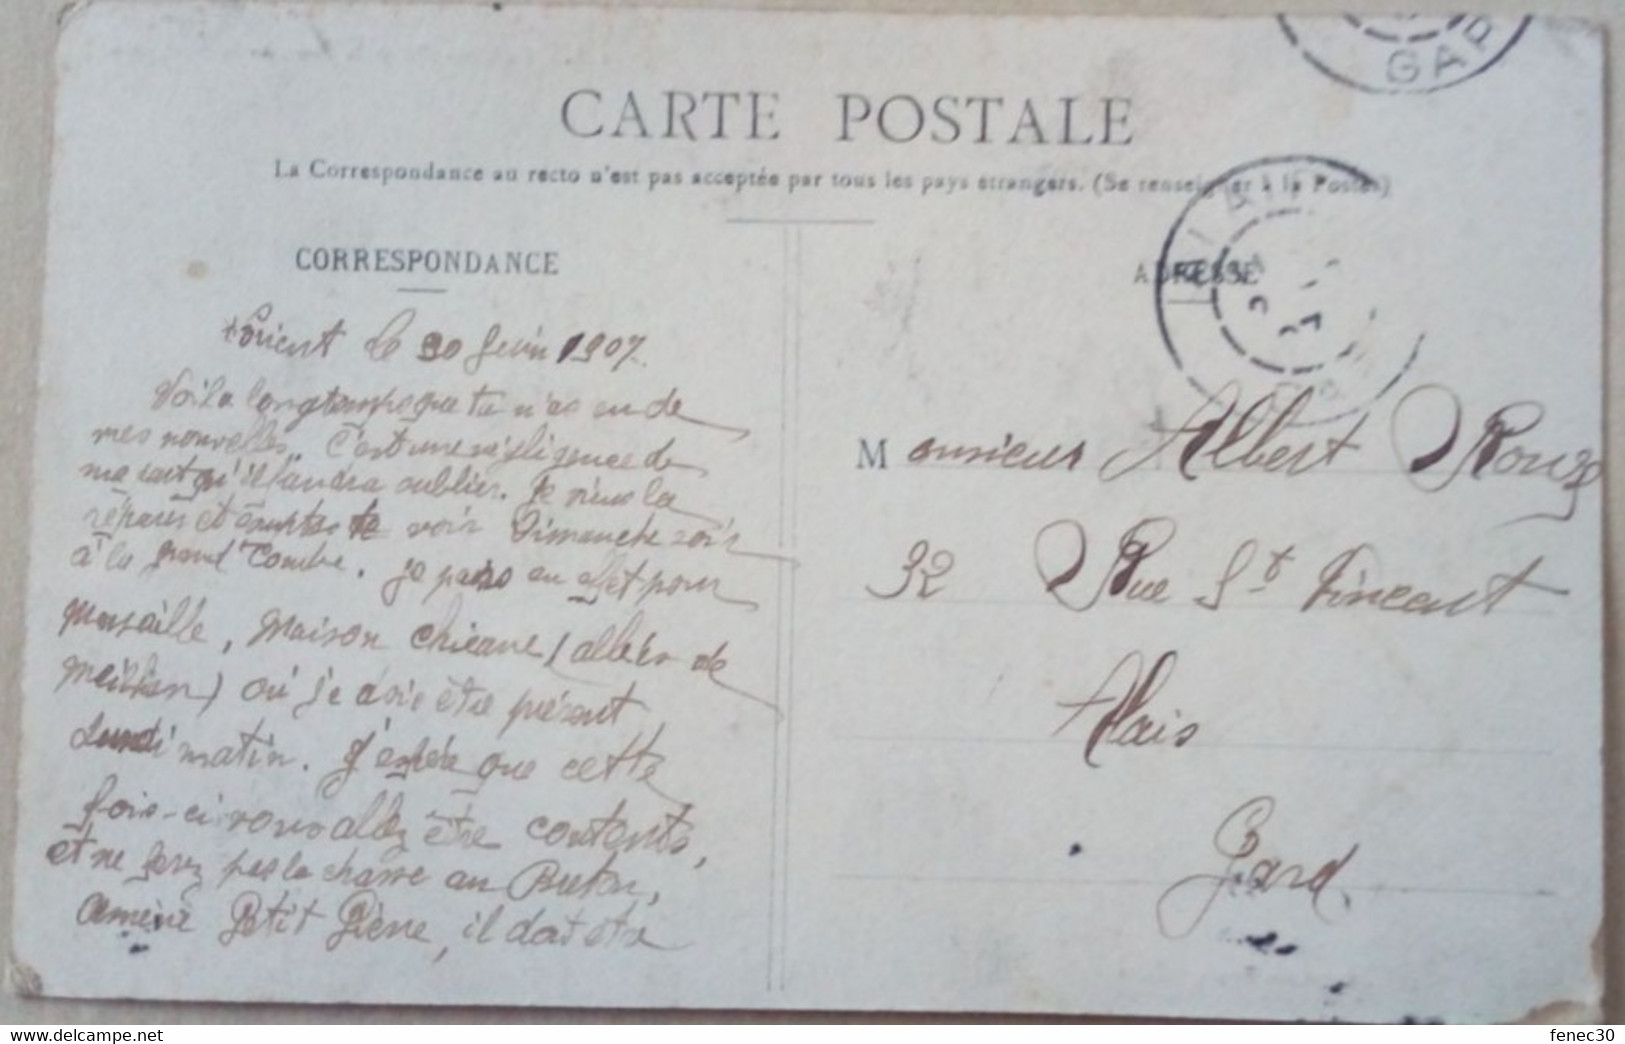 GAP
CARTE POSTALE
La Correspondance au recto n'est pas acceptée par tous les pays étrangers. (Se renseigner à la Poste.)
CORRESPONDANCE
ADRESSE
Lorient le 1907.
Voilà longtemps que tu n'as eu de
mes nouvelles. C'est une négligence de
ma part qu'il faudra oublier. Je viens la
réparer et compte te voir Dimanche soir
à la grand'Combe. Je passe en effet pour
Marseille, Maison (allées de
Meilhan) où je dois être présent
Lundi matin. J'espère que cette
fois-ci vous allez être contents,
et ne ferez pas la chasse au Breton,
Amène Petit Pierre, il doit être
Monsieur Albert
32 Rue St Vincent
Alais
Gard.
www.delcampe.net
fenec30